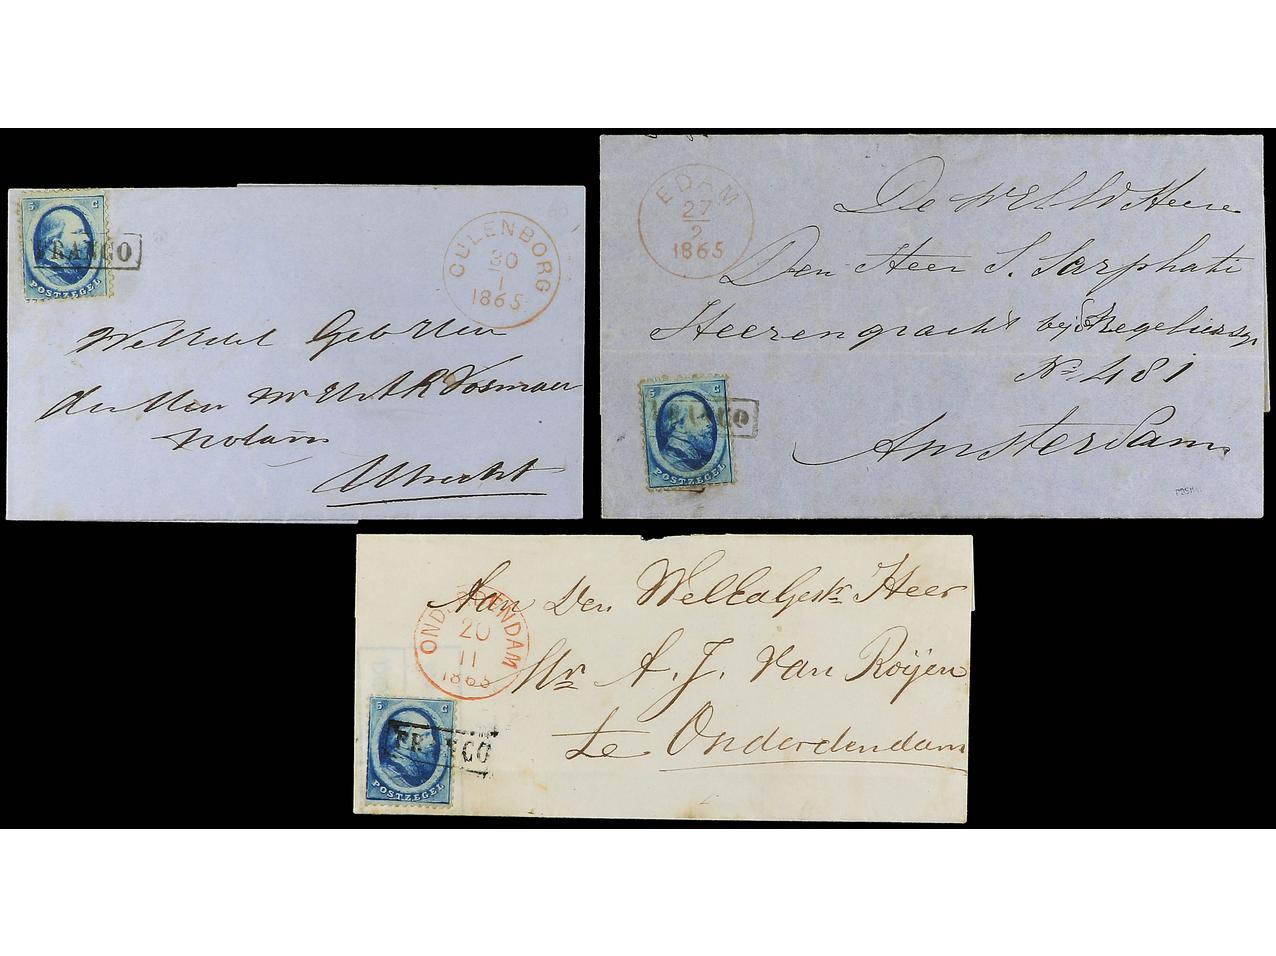 5 C
FRANCO
POSTZEGEL
CULENBORG
30
1
1865
Geb
Vosmaer
Utrecht
EDAM
27
2
1865
De Heere
Den Heer S. Sarphati
Heerengracht bij
No 481
Amsterdam
5 C
FRANCO
POSTZEGEL
ONDERDENDAM
20
11
1865
Aan Den WelEdGestr Heer
Mr A. J. Van Roijen
te Onderdendam
5 C
FRANCO
POSTZEGEL